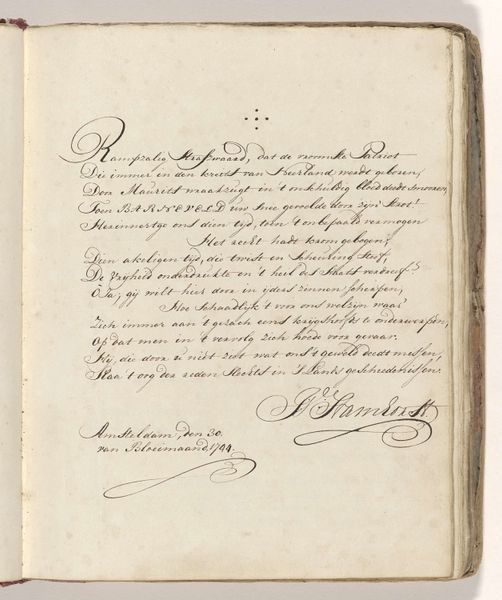 Rampzalig Strafzwaard, dat de vroomste Patriot
Die immer in den kreits van Neerland werdt geboren,
Door Maurits waakzugt in 't onschuldig bloed deedt smooren,
Toen BARNEVELD uw snee gevoelde door zijn strot!
Herinnertge ons dien tijd, toen 't onbepaald vermogen
Het recht hadt krom gebogen;
Dien akeligen tijd, die twist en scheuring stief,
De Vrijheid onderdrukte en 't heil des Staats verdreef?
ô Ja; gij wilt hier door in ijders zinnen scherpen,
Hoe schaadlijk 't voor ons welzijn waar'
Zich immer aan 't gezach eens krijgshoofds te onderwerpen,
Op dat men in 't vervolg zich hoede voor gevaar.
Hij, die door u niet ziet wat ons 't geweld deedt missen,
Slaa 't oog der reden slechts in 's Lands geschiedenissen.
Amsteldam, den 30.
van Bloeimaand, 1794.